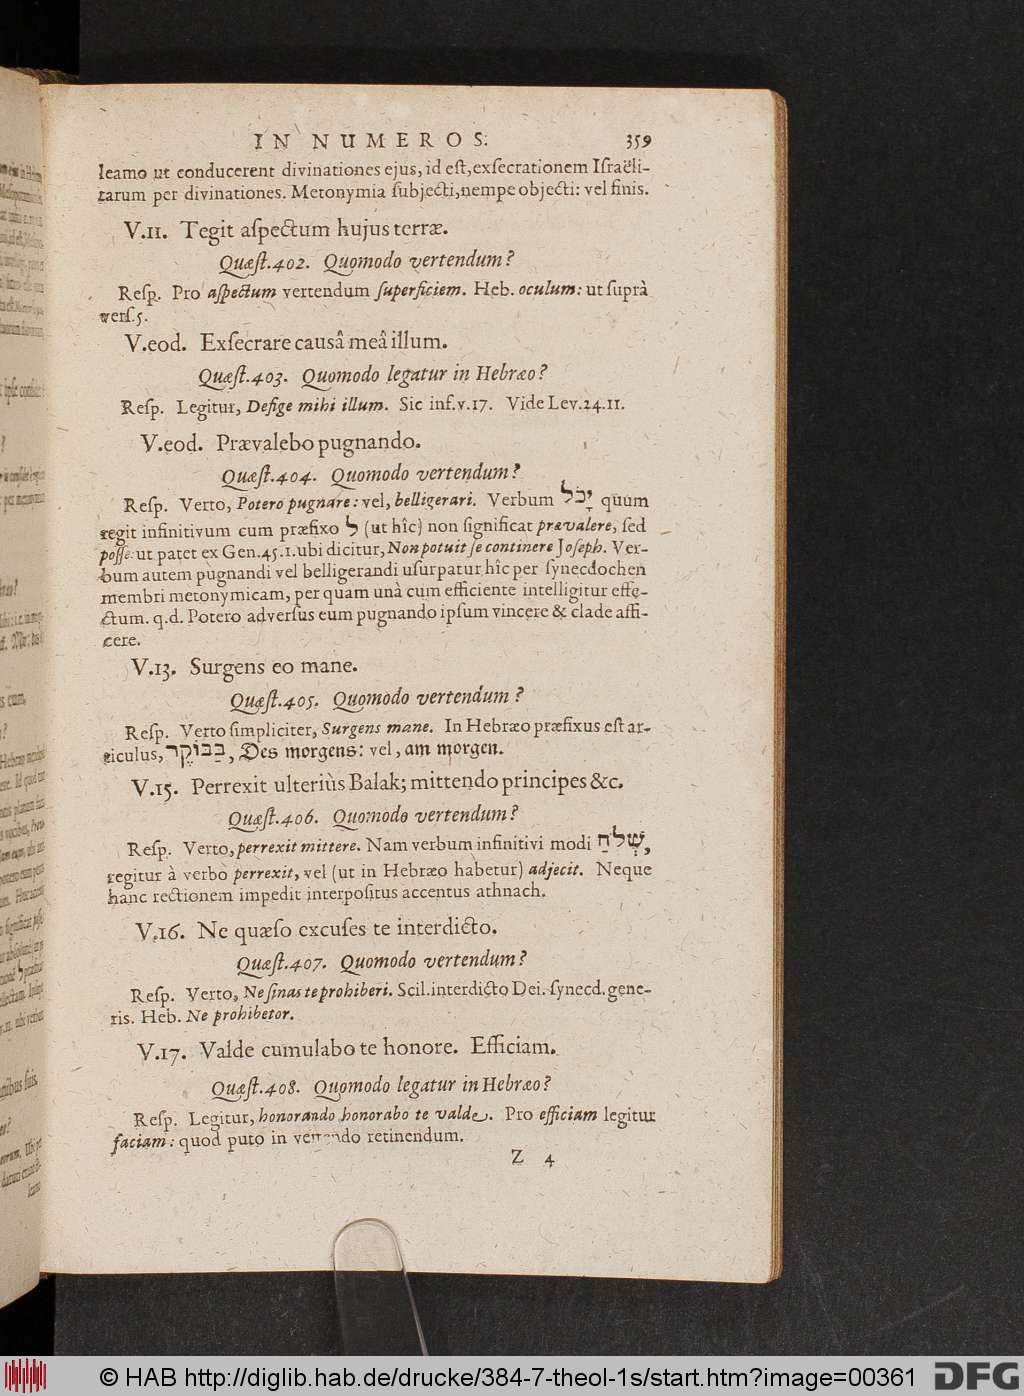 IN NUMEROS. 359
leamo ut conducerent divinationes ejus, id eſt, exſecrationem Iſraëli-
tarum per divinationes. Metonymia ſubjecti, nempe objecti: vel finis.
V.11. Tegit aſpectum hujus terræ.
Quæſt.402. Quomodo vertendum?
Reſp. Pro aſpectum vertendum ſuperficiem. Heb. oculum: ut ſuprà
verſ.5.
V.eod. Exſecrare causâ meâ illum.
Quæſt.403. Quomodo legatur in Hebræo?
Reſp. Legitur, Defige mihi illum. Sic inf.v.17. Vide Lev.24.11.
V.eod. Prævalebo pugnando.
Quæſt.404. Quomodo vertendum?
Reſp. Verto, Potero pugnare: vel, belligerari. Verbum יָכֹל quum
regit infinitivum cum præfixo ל (ut hîc) non ſignificat prævalere, ſed
poſſe: ut patet ex Gen.45.1. ubi dicitur, Non potuit ſe continere Joſeph. Ver-
bum autem pugnandi vel belligerandi uſurpatur hîc per ſynecdochen
membri metonymicam, per quam unà cum efficiente intelligitur effe-
ctum. q.d. Potero adverſus eum pugnando ipſum vincere & clade affi-
cere.
V.13. Surgens eo mane.
Quæſt.405. Quomodo vertendum?
Reſp. Verto ſimpliciter, Surgens mane. In Hebræo præfixus eſt ar-
ticulus, בַּבּוֹקֶר, Des morgens: vel, am morgen.
V.15. Perrexit ulteriùs Balak; mittendo principes &c.
Quæſt.406. Quomodo vertendum?
Reſp. Verto, perrexit mittere. Nam verbum infinitivi modi שְׁלֹחַ,
regitur à verbo perrexit, vel (ut in Hebræo habetur) adjecit. Neque
hanc rectionem impedit interpoſitus accentus athnach.
V.16. Ne quæſo excuſes te interdicto.
Quæſt.407. Quomodo vertendum?
Reſp. Verto, Ne ſinas te prohiberi. Scil. interdicto Dei. ſynecd. gene-
ris. Heb. Ne prohibetor.
V.17. Valde cumulabo te honore. Efficiam.
Quæſt.408. Quomodo legatur in Hebræo?
Reſp. Legitur, honorando honorabo te valde. Pro efficiam legitur
faciam: quod puto in vertendo retinendum.
Z 4
© HAB http://diglib.hab.de/drucke/384-7-theol-1s/start.htm?image=00361
DFG